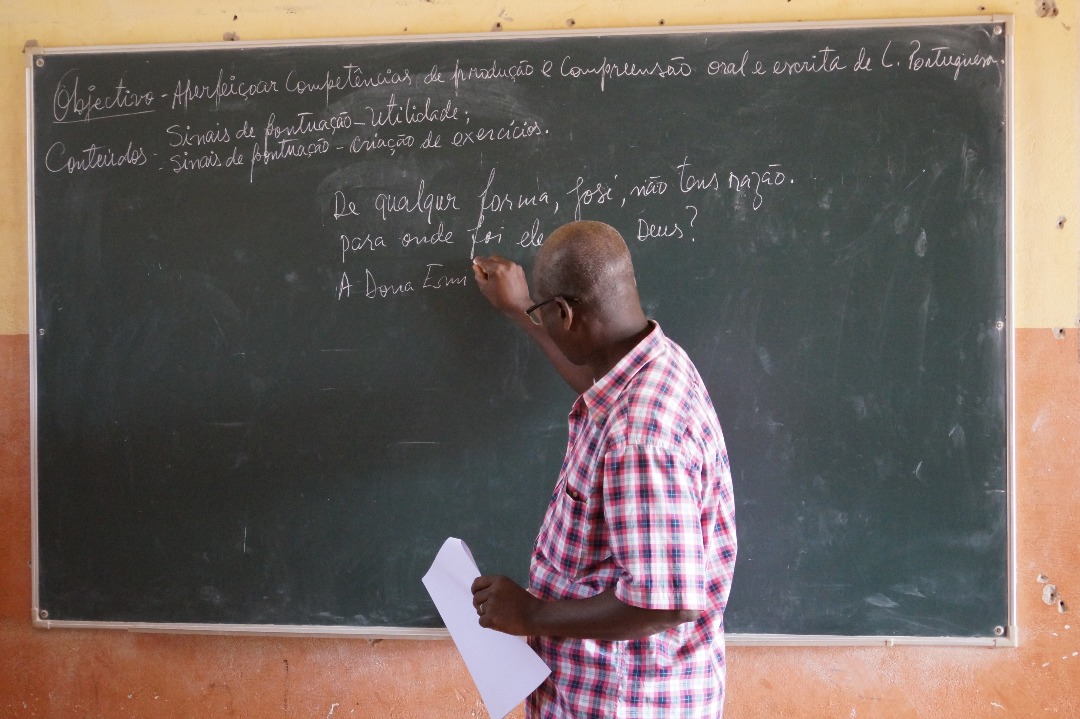 Objectivo - Aperfeiçoar Competências de produção e Compreensão oral e escrita de L. Portuguesa.
Conteúdos - Sinais de pontuação - Utilidade;
- Sinais de pontuação - criação de exercícios.
De qualquer forma, José, não tens razão.
para onde foi ele Deus?
A Dona Erm